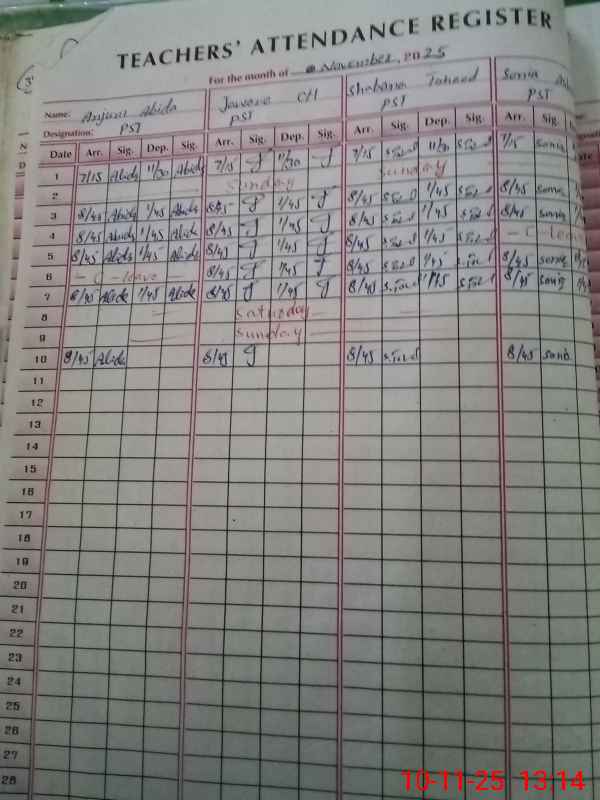 TEACHERS' ATTENDANCE REGISTER
For the month of November, 2025
Name: Anjum Abida Jawaria CH Shabana Sonia
Designation: PST PST PST PST
Date Arr. Sig. Dep. Sig. Arr. Sig. Dep. Sig. Arr. Sig. Dep. Sig. Arr. Sig.
1 7/15 Abida 11/30 Abida 7/15 11/30 7/15 11/30 7/15 sonia
2 Sunday Sunday
3 8/45 Abida 1/45 Abida 8/45 1/45 8/45 1/45 8/45 sonia
4 8/45 Abida 1/45 Abida 8/45 1/45 8/45 1/45 8/45 sonia
5 8/45 Abida 1/45 Abida 8/45 1/45 8/45 1/45 C leave
6 C - leave 8/45 1/45 8/45 1/45 8/45 sonia
7 8/45 Abida 1/45 Abida 8/45 1/45 8/45 1/45 8/45 sonia
8 Saturday
9 Sunday
10 8/45 Abida 8/45 8/45 8/45 sonia
11
12
13
14
15
16
17
18
19
20
21
22
23
24
25
26
27
28
10-11-25 13:14